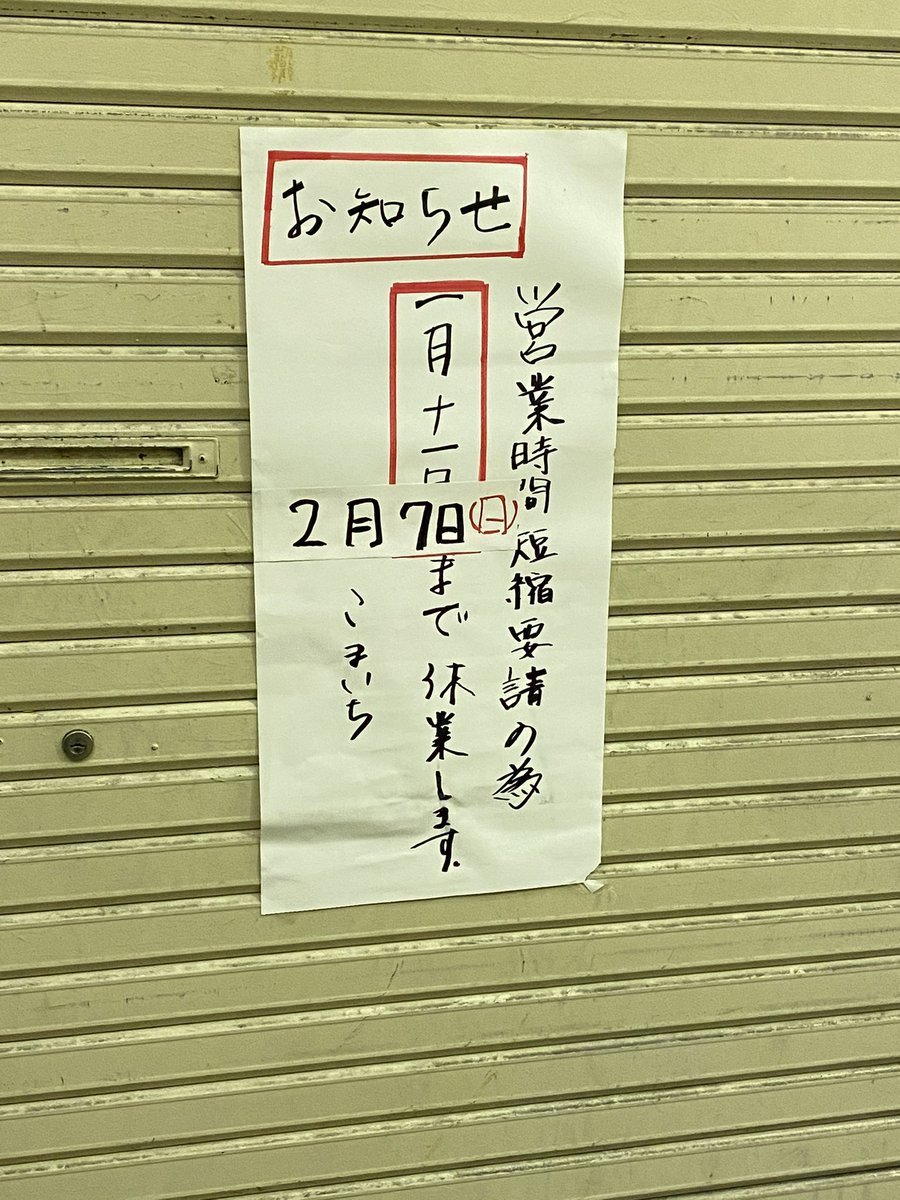 お知らせ
営業時間短縮要請の為
一月十一日
2月7日(日)
まで休業します。
こまいち